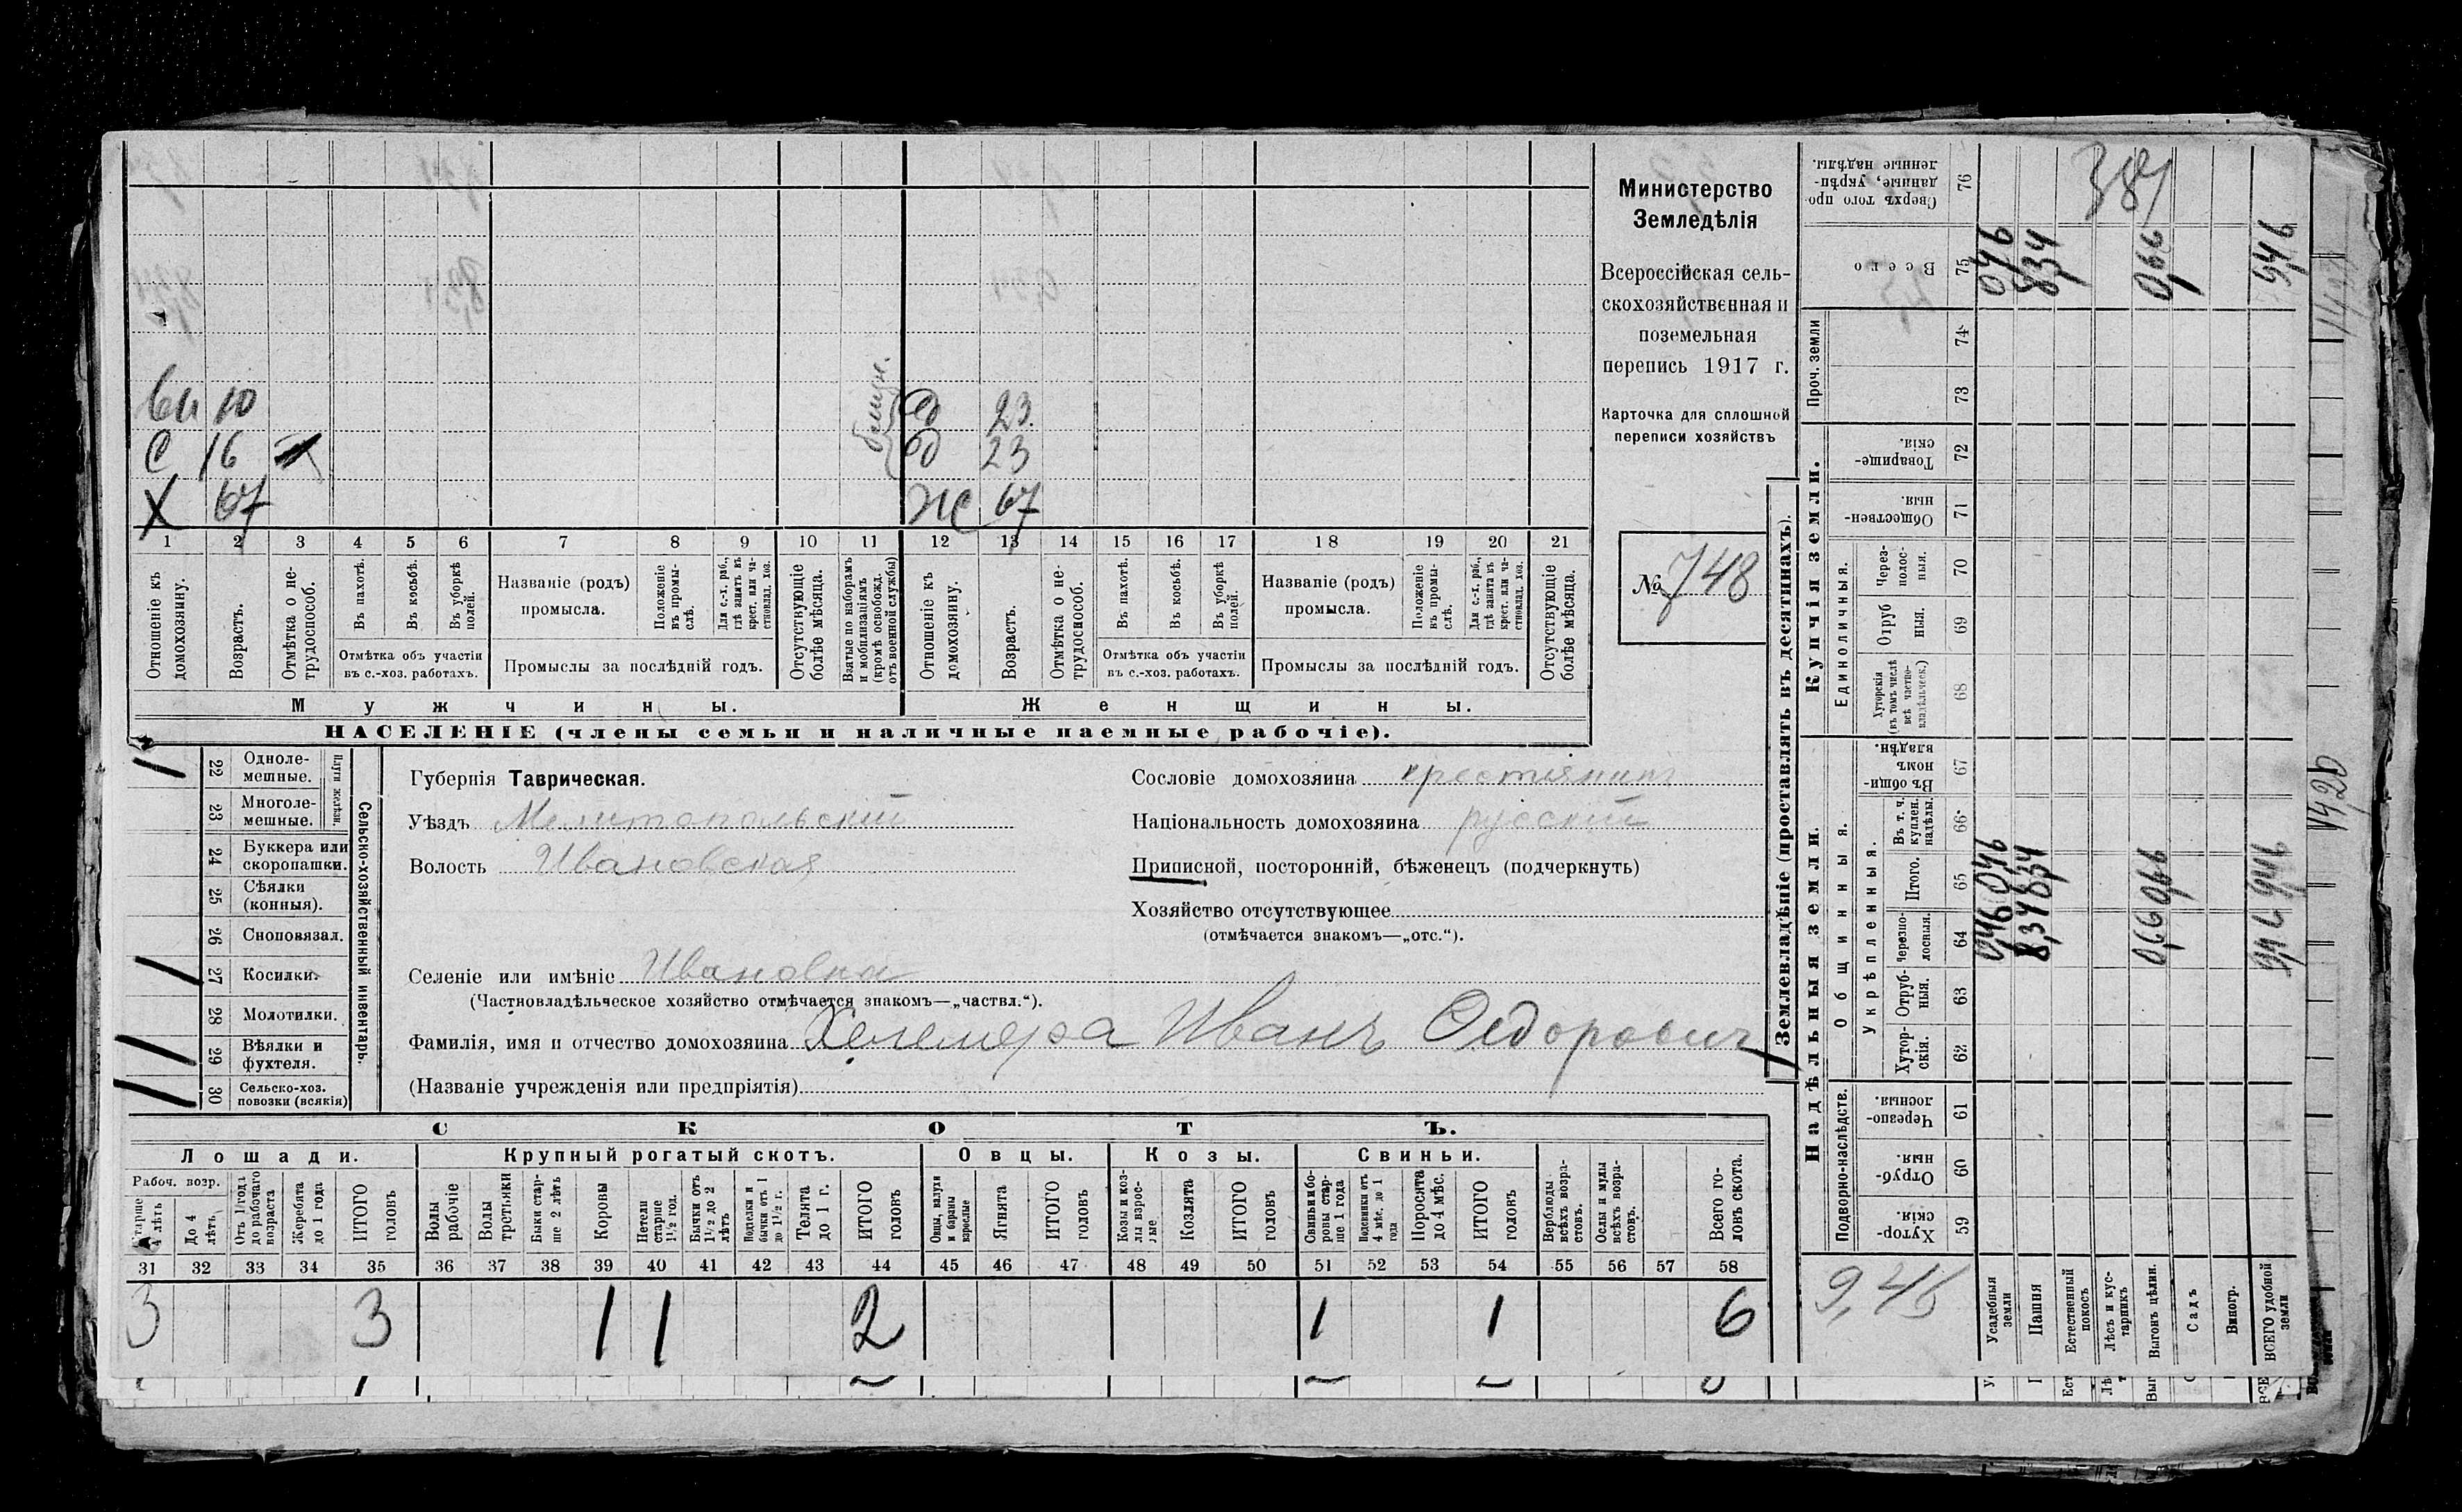 вн 10
С 16
Х 67
близн.
д 23
д 23
Ж 67
1 2 3 4 5 6 7 8 9 10 11 12 13 14 15 16 17 18 19 20 21
Отношеніе къ домохозяину.
Возрастъ.
Отмѣтка о нетрудоспособ.
Въ пахотѣ.
Въ косьбѣ.
Въ уборкѣ полей.
Отмѣтка объ участіи
въ с.-хоз. работахъ.
Названіе (родъ)
промысла.
Положеніе въ промыслѣ.
Для с.-х. раб., гдѣ занятъ въ крест. или частновлад. хоз.
Промыслы за послѣдній годъ.
Отсутствующіе болѣе мѣсяца.
Взятые по наборамъ и мобилизаціямъ (кромѣ освобожд. отъ военной службы)
Отношеніе къ домохозяину.
Возрастъ.
Отмѣтка о нетрудоспособ.
Въ пахотѣ.
Въ косьбѣ.
Въ уборкѣ полей.
Отмѣтка объ участіи
въ с.-хоз. работахъ.
Названіе (родъ)
промысла.
Положеніе въ промыслѣ.
Для с.-х. раб., гдѣ занята въ крест. или частновлад. хоз.
Промыслы за послѣдній годъ.
Отсутствующіе болѣе мѣсяца.
Мужчины.
Женщины.
НАСЕЛЕНІЕ (члены семьи и наличные наемные рабочіе).
Министерство
Земледѣлія
Всероссійская сель-
скохозяйственная и
поземельная
перепись 1917 г.
Карточка для сплошной
переписи хозяйствъ
№ 748
22 Одноле-
мешные.
23 Многоле-
мешные.
Плуги желѣзн.
24 Буккера или
скоропашки.
25 Сѣялки
(конныя).
26 Сноповязал.
27 Косилки.
28 Молотилки.
29 Вѣялки и
фухтеля.
30 Сельско-хоз.
повозки (всякія)
Сельско-хозяйственный инвентарь.
Губернія Таврическая.
Уѣздъ Мелитопольскій
Волость Ивановская
Селеніе или имѣніе Ивановка
(Частновладѣльческое хозяйство отмѣчается знакомъ—„частвл.“).
Фамилія, имя и отчество домохозяина Иванъ Федорович
(Названіе учрежденія или предпріятія)
Сословіе домохозяина крестьянинъ
Національность домохозяина русскій
Приписной, посторонній, бѣженецъ (подчеркнуть)
Хозяйство отсутствующее
(отмѣчается знакомъ—„отс.“).
СКОТЪ.
Лошади.
Крупный рогатый скотъ.
Овцы.
Козы.
Свиньи.
Рабоч. возр.
Старше 4 лѣтъ
До 4 лѣтъ
Отъ 1 года до рабочаго возраста
Жеребята до 1 года
ИТОГО головъ
Волы рабочіе
Волы третьяки
Быки старше 2 лѣтъ
Коровы
Нетели старше 1½ год.
Бычки отъ 1½ до 2 лѣтъ
Подтелки и бычки отъ 1 до 1½ г.
Телята до 1 г.
ИТОГО головъ
Овцы, валухи и бараны взрослые
Ягнята
ИТОГО головъ
Козы и козлы взрослые
Козлята
ИТОГО головъ
Свиньи и боровы старше 1 года
Подсвинки отъ 4 мѣс. до 1 года
Поросята до 4 мѣс.
ИТОГО головъ
Верблюды всѣхъ возрастовъ.
Ослы и мулы всѣхъ возрастовъ.
Всего головъ скота.
31 32 33 34 35 36 37 38 39 40 41 42 43 44 45 46 47 48 49 50 51 52 53 54 55 56 57 58
3 3 1 1 2 1 1 6
Землевладѣніе (проставлять въ десятинахъ).
Надѣльныя земли.
Купчія земли.
Проч. земли
Подворно-наслѣдств.
Общинныя.
Укрѣпленныя.
Единоличныя.
Хуторскія. 59
Отрубныя. 60
Черезполосныя. 61
Хуторскія. 62
Отрубныя. 63
Черезполосныя. 64
Итого. 65
Въ т. ч. куплен. надѣлы. 66
Въ общинномъ владѣн. 67
Хуторскія (въ томъ числѣ всѣ частновладѣльческ.) 68
Отрубныя. 69
Черезполосныя. 70
Общественныя. 71
Товарищескія. 72
73
74
Всего 75
Сверхъ того проданные, укрѣпленные надѣлы. 76
Усадебныя земли 0,46 0,46 0,46
Пашня 8,34 8,34 8,34
Естественный покосъ
Лѣсъ и кустарникъ
Выгонъ цѣлин. 0,66 0,66 0,66
Садъ
Виногр.
ВСЕГО удобной земли 9,46 9,46 9,46
9,46
381